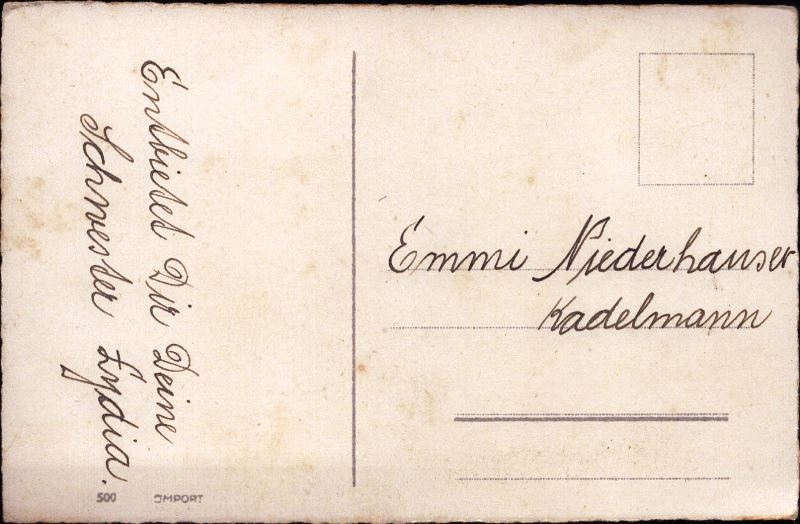 Entbietet Dir Deine
Schwester Lydia.
Emmi Niederhauser
Kadelmann
500 IMPORT